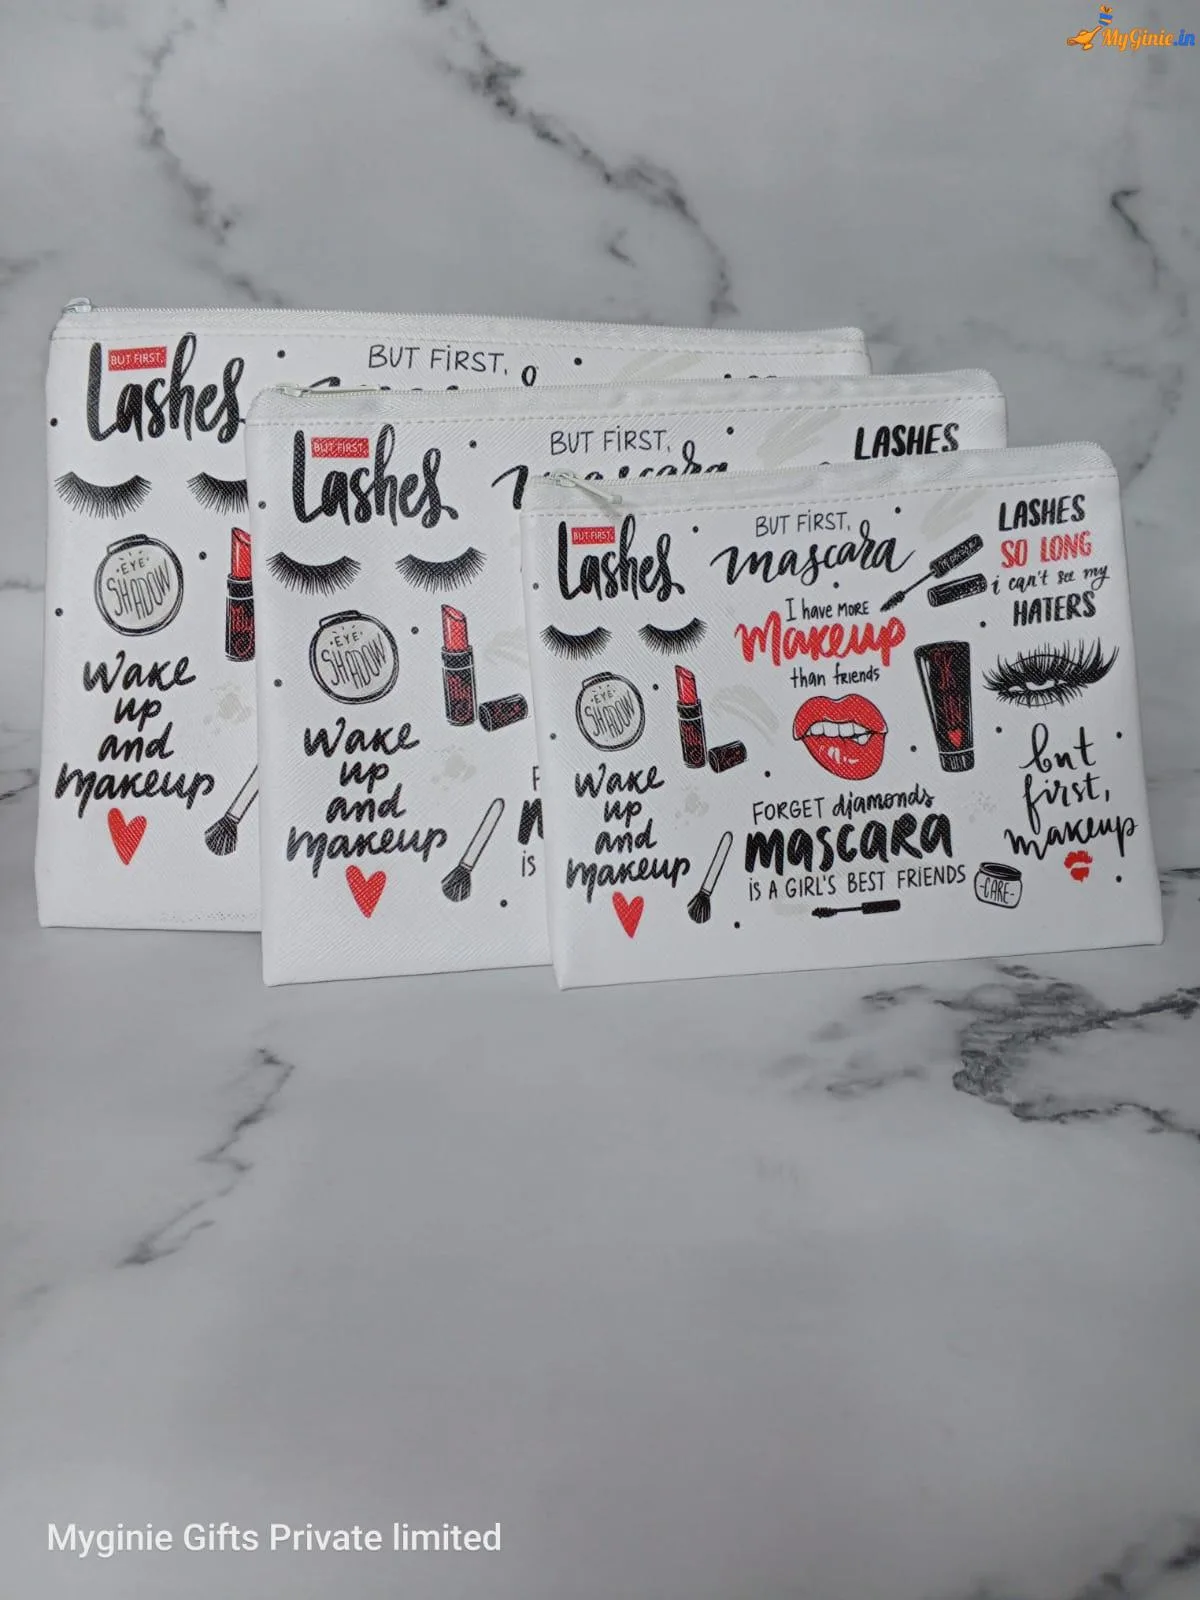 MyGinie.in
BUT FIRST,
Lashes
BUT FIRST,
EYE
SHADOW
Wake
up
and
makeup
BUT FIRST,
Lashes
BUT FIRST,
mascara
LASHES
EYE
SHADOW
Wake
up
and
makeup
is
BUT FIRST,
Lashes
BUT FIRST,
mascara
LASHES
SO LONG
i can't see my
HATERS
I have MORE
Makeup
than friends
EYE
SHADOW
Wake
up
and
makeup
FORGET diamonds
mascara
IS A GIRL'S BEST FRIENDS
-CARE-
but
first,
makeup
Myginie Gifts Private limited